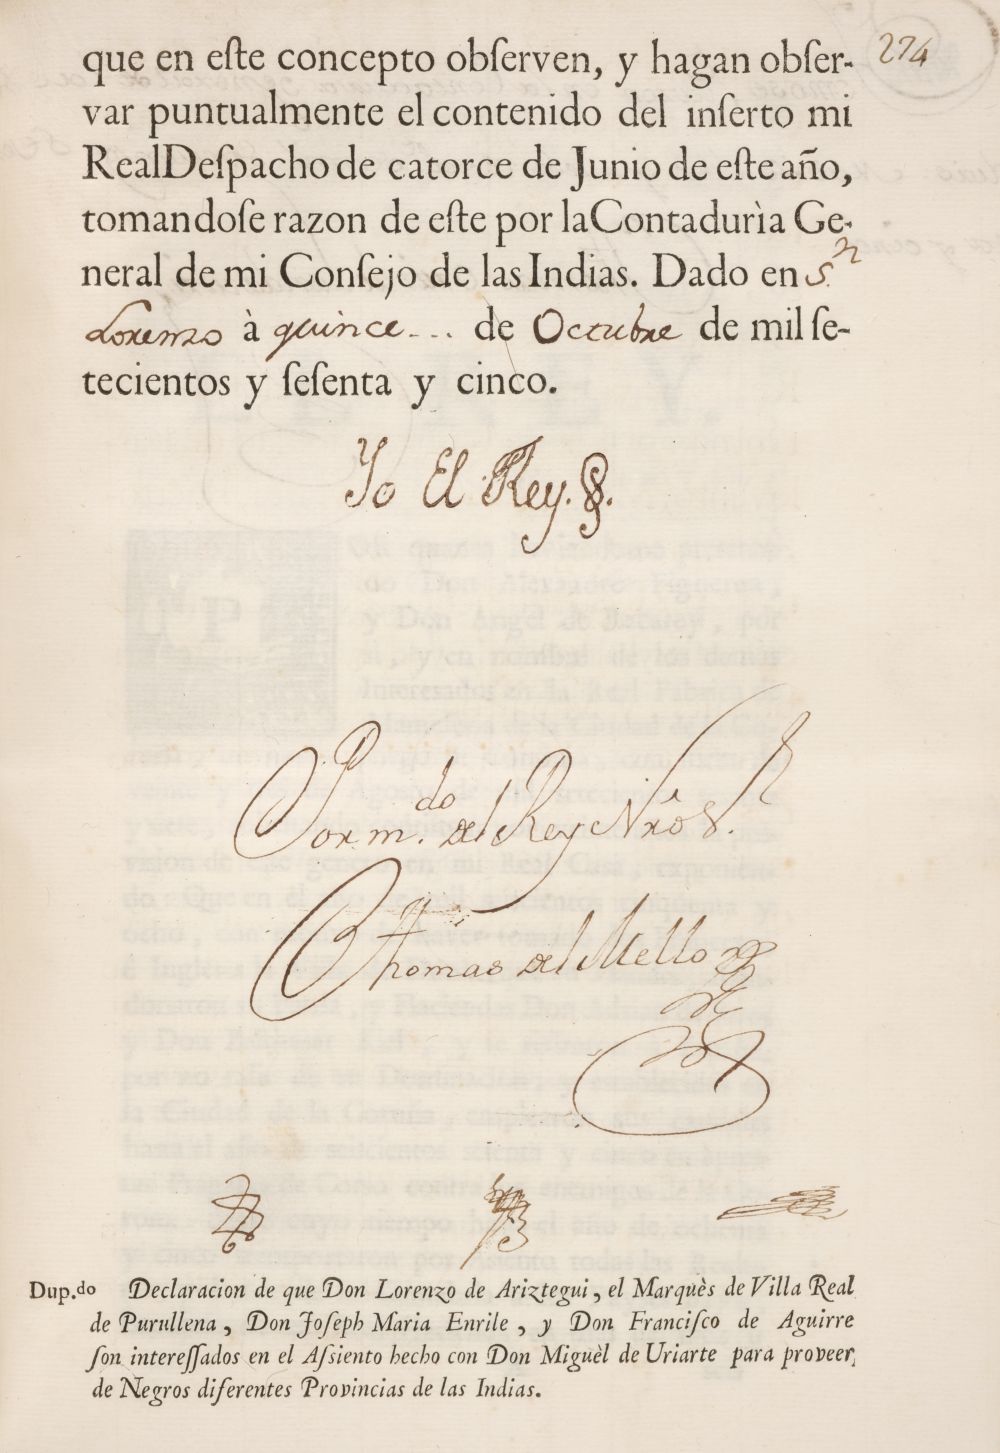 274
que en eſte concepto obſerven, y hagan obſer-
var puntualmente el contenido del inſerto mi
Real Deſpacho de catorce de Junio de eſte año,
tomandoſe razon de eſte por la Contadurìa Ge-
neral de mi Conſejo de las Indias. Dado en S.ⁿ
Lorenzo à quince... de Octubre de mil ſe-
tecientos y ſeſenta y cinco.
Yo El Rey.
Por m.do del Rey Nrõ S.r
Thomas del Mello
Dup.do Declaracion de que Don Lorenzo de Ariztegui, el Marquès de Villa Real
de Purullena, Don Joſeph Maria Enrile, y Don Franciſco de Aguirre
ſon intereſſados en el Aſsiento hecho con Don Miguèl de Uriarte para proveer,
de Negros diferentes Provincias de las Indias.